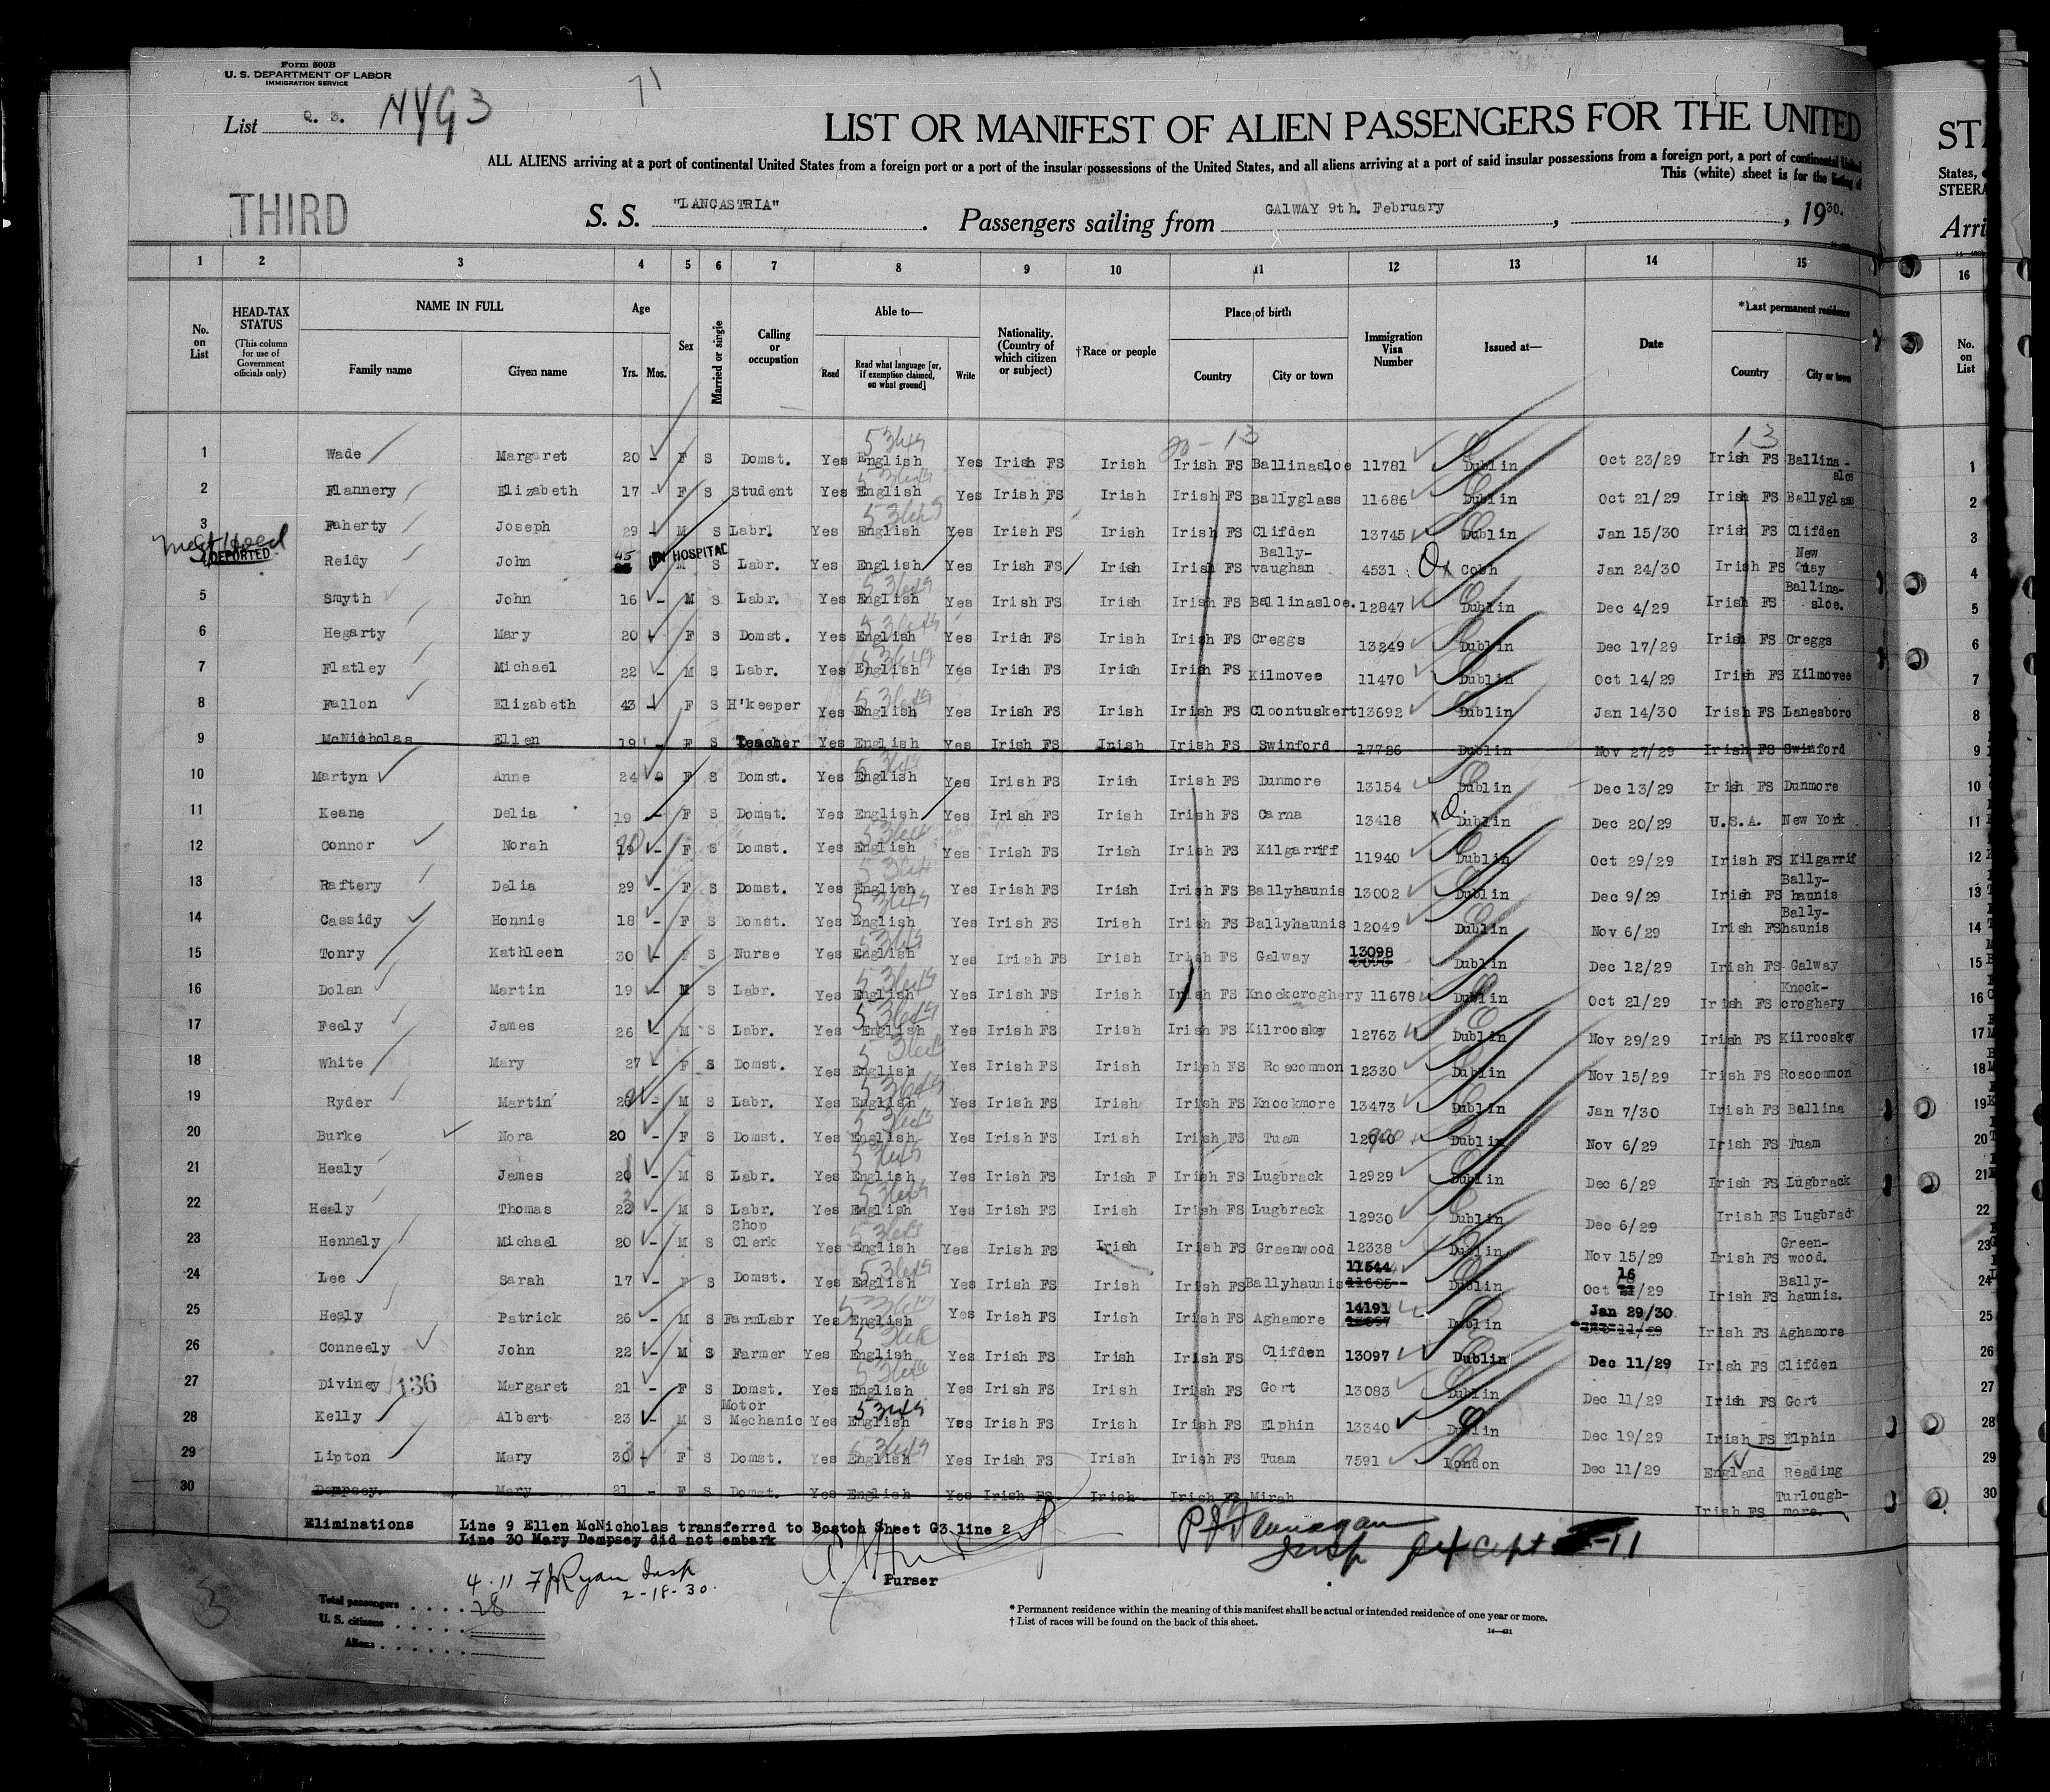 Form 500B
U. S. DEPARTMENT OF LABOR
IMMIGRATION SERVICE
71
List G. 3. NYG3
LIST OR MANIFEST OF ALIEN PASSENGERS FOR THE UNITED
ALL ALIENS arriving at a port of continental United States from a foreign port or a port of the insular possessions of the United States, and all aliens arriving at a port of said insular possessions from a foreign port, a port of continental United
This (white) sheet is for the listing of
THIRD
S. S. "LANCASTRIA". Passengers sailing from GALWAY 9th. February, , 1930.
1 2 3 4 5 6 7 8 9 10 11 12 13 14 15
No. on List
HEAD-TAX STATUS
(This column for use of Government officials only)
NAME IN FULL
Family name Given name
Age
Yrs. Mos.
Sex
Married or single
Calling or occupation
Able to—
Read
Read what language [or, if exemption claimed, on what ground]
Write
Nationality. (Country of which citizen or subject)
†Race or people
Place of birth
Country City or town
Immigration Visa Number
Issued at—
Date
*Last permanent residence
Country City or town
20-13 13
1 Wade Margaret 20 - F S Domst. Yes English Yes Irish FS Irish Irish FS Ballinasloe 11781 Dublin Oct 23/29 Irish FS Ballina-sloe
2 Flannery Elizabeth 17 - F S Student Yes English Yes Irish FS Irish Irish FS Ballyglass 11686 Dublin Oct 21/29 Irish FS Ballyglass
3 Faherty Joseph 29 - M S Labr. Yes English Yes Irish FS Irish Irish FS Clifden 13745 Dublin Jan 15/30 Irish FS Clifden
DEPORTED
4 Reidy John 45 IN HOSPITAL M S Labr. Yes English Yes Irish FS Irish Irish FS Bally-vaughan 4531 Cobh Jan 24/30 Irish FS New Quay
5 Smyth John 16 - M S Labr. Yes English Yes Irish FS Irish Irish FS Ballinasloe. 12847 Dublin Dec 4/29 Irish FS Ballina-sloe.
6 Hegarty Mary 20 - F S Domst. Yes English Yes Irish FS Irish Irish FS Creggs 13249 Dublin Dec 17/29 Irish FS Creggs
7 Flatley Michael 22 - M S Labr. Yes English Yes Irish FS Irish Irish FS Kilmovee 11470 Dublin Oct 14/29 Irish FS Kilmovee
8 Fallon Elizabeth 43 - F S H'keeper Yes English Yes Irish FS Irish Irish FS Cloontuskert 13692 Dublin Jan 14/30 Irish FS Lanesboro
9 McNicholas Ellen 19 - F S Teacher Yes English Yes Irish FS Irish Irish FS Swinford 17726 Dublin Nov 27/29 Irish FS Swinford
10 Martyn Anne 24 - F S Domst. Yes English Yes Irish FS Irish Irish FS Dunmore 13154 Dublin Dec 13/29 Irish FS Dunmore
11 Keane Delia 19 - F S Domst. Yes English Yes Irish FS Irish Irish FS Carna 13418 Dublin Dec 20/29 U.S.A. New York
12 Connor Norah 20 - F S Domst. Yes English Yes Irish FS Irish Irish FS Kilgarriff 11940 Dublin Oct 29/29 Irish FS Kilgarrif
13 Raftery Delia 29 - F S Domst. Yes English Yes Irish FS Irish Irish FS Ballyhaunis 13002 Dublin Dec 9/29 Irish FS Bally-haunis
14 Cassidy Honnie 18 - F S Domst. Yes English Yes Irish FS Irish Irish FS Ballyhaunis 12049 Dublin Nov 6/29 Irish FS Bally-haunis
15 Tonry Kathleen 30 - F S Nurse Yes English Yes Irish FS Irish Irish FS Galway 13098 Dublin Dec 12/29 Irish FS Galway
16 Dolan Martin 19 - M S Labr. Yes English Yes Irish FS Irish Irish FS Knockcroghery 11678 Dublin Oct 21/29 Irish FS Knock-croghery
17 Feely James 26 - M S Labr. Yes English Yes Irish FS Irish Irish FS Kilrooskey 12763 Dublin Nov 29/29 Irish FS Kilrooskey
18 White Mary 27 - F S Domst. Yes English Yes Irish FS Irish Irish FS Roscommon 12330 Dublin Nov 15/29 Irish FS Roscommon
19 Ryder Martin - M S Labr. Yes English Yes Irish FS Irish Irish FS Knockmore 13473 Dublin Jan 7/30 Irish FS Ballina
20 Burke Nora 20 - F S Domst. Yes English Yes Irish FS Irish Irish FS Tuam Dublin Nov 6/29 Irish FS Tuam
21 Healy James - M S Labr. Yes English Yes Irish FS Irish F Irish FS Lugbrack 12929 Dublin Dec 6/29 Irish FS Lugbrack
22 Healy Thomas - M S Labr. Yes English Yes Irish FS Irish Irish FS Lugbrack 12930 Dublin Dec 6/29 Irish FS Lugbrac
23 Hennely Michael 20 - M S Shop Clerk Yes English Yes Irish FS Irish Irish FS Greenwood 12338 Dublin Nov 15/29 Irish FS Green-wood.
24 Lee Sarah 17 - F S Domst. Yes English Yes Irish FS Irish Irish FS Ballyhaunis 11544 Dublin Oct 16/29 Irish FS Bally-haunis.
25 Healy Patrick 26 - M S FarmLabr Yes English Yes Irish FS Irish Irish FS Aghamore 14191 Dublin Jan 29/30 Irish FS Aghamore
26 Conneely John 22 - M S Farmer Yes English Yes Irish FS Irish Irish FS Clifden 13097 Dublin Dec 11/29 Irish FS Clifden
27 Diviney 136 Margaret 21 - F S Domst. Yes English Yes Irish FS Irish Irish FS Gort 13083 Dublin Dec 11/29 Irish FS Gort
28 Kelly Albert 23 - M S Motor Mechanic Yes English Yes Irish FS Irish Irish FS Elphin 13340 Dublin Dec 19/29 Irish FS Elphin
29 Lipton Mary 30 - F S Domst. Yes English Yes Irish FS Irish Irish FS Tuam 7591 London Dec 11/29 England Reading
30 Dempsey. Mary 21 - F S Domst. Yes English Yes Irish FS Irish Irish FS Mirah Irish FS Turlough-more.
Eliminations Line 9 Ellen McNicholas transferred to Boston Sheet G3 line 2
Line 30 Mary Dempsey did not embark
Purser
4-11 FJRyan Insp
2-18-30.
Total passengers . . . . 28
U. S. citizens . . . . .
Aliens . . . . . .
* Permanent residence within the meaning of this manifest shall be actual or intended residence of one year or more.
† List of races will be found on the back of this sheet.
14—431
STA
States,
STEERA
Arri
16
No. on List
1
2
3
4
5
6
7
8
9
10
11
12
13
14
15
16
17
18
19
20
21
22
23
24
25
26
27
28
29
30